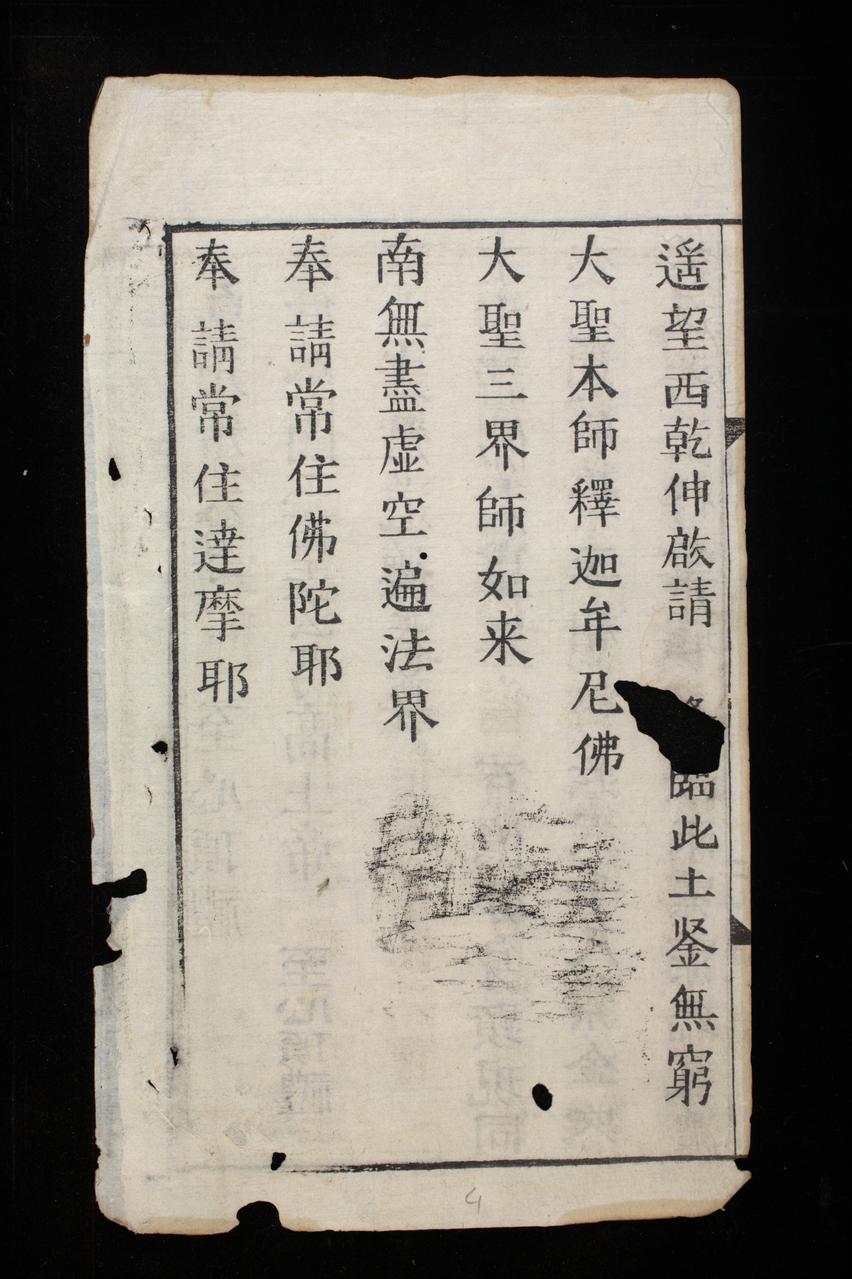 遥望西乾伸啟請 臨此土鉴無窮
大聖本師釋迦牟尼佛
大聖三界師如来
南無盡虛空遍法界
奉請常住佛陀耶
奉請常住達摩耶
4